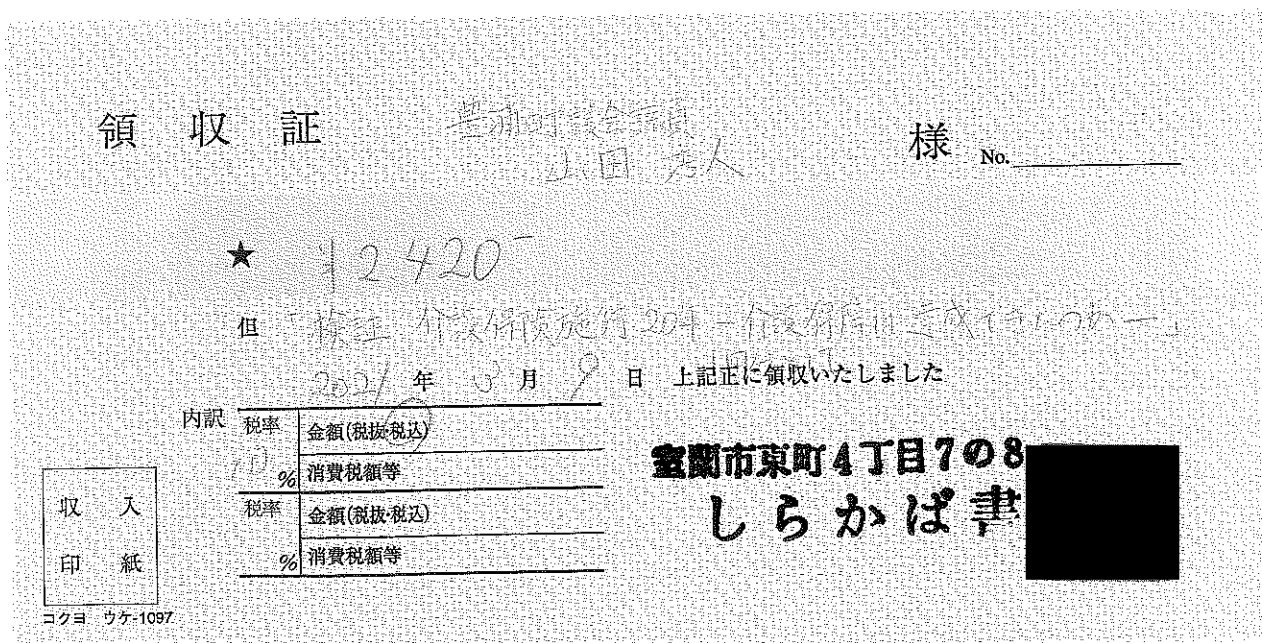 領収証 豊浦町議会議員 様 No.
山田 秀人
★ ¥2420-
但 「検証 介護保険施行20年 ー介護保険は達成できたのかー」
2021年 3月 9日 上記正に領収いたしました
内訳 税率 金額(税抜・税込)
10% 消費税額等
税率 金額(税抜・税込)
% 消費税額等
収入
印紙
室蘭市東町4丁目7の8
しらかば書
コクヨ ウケ-1097